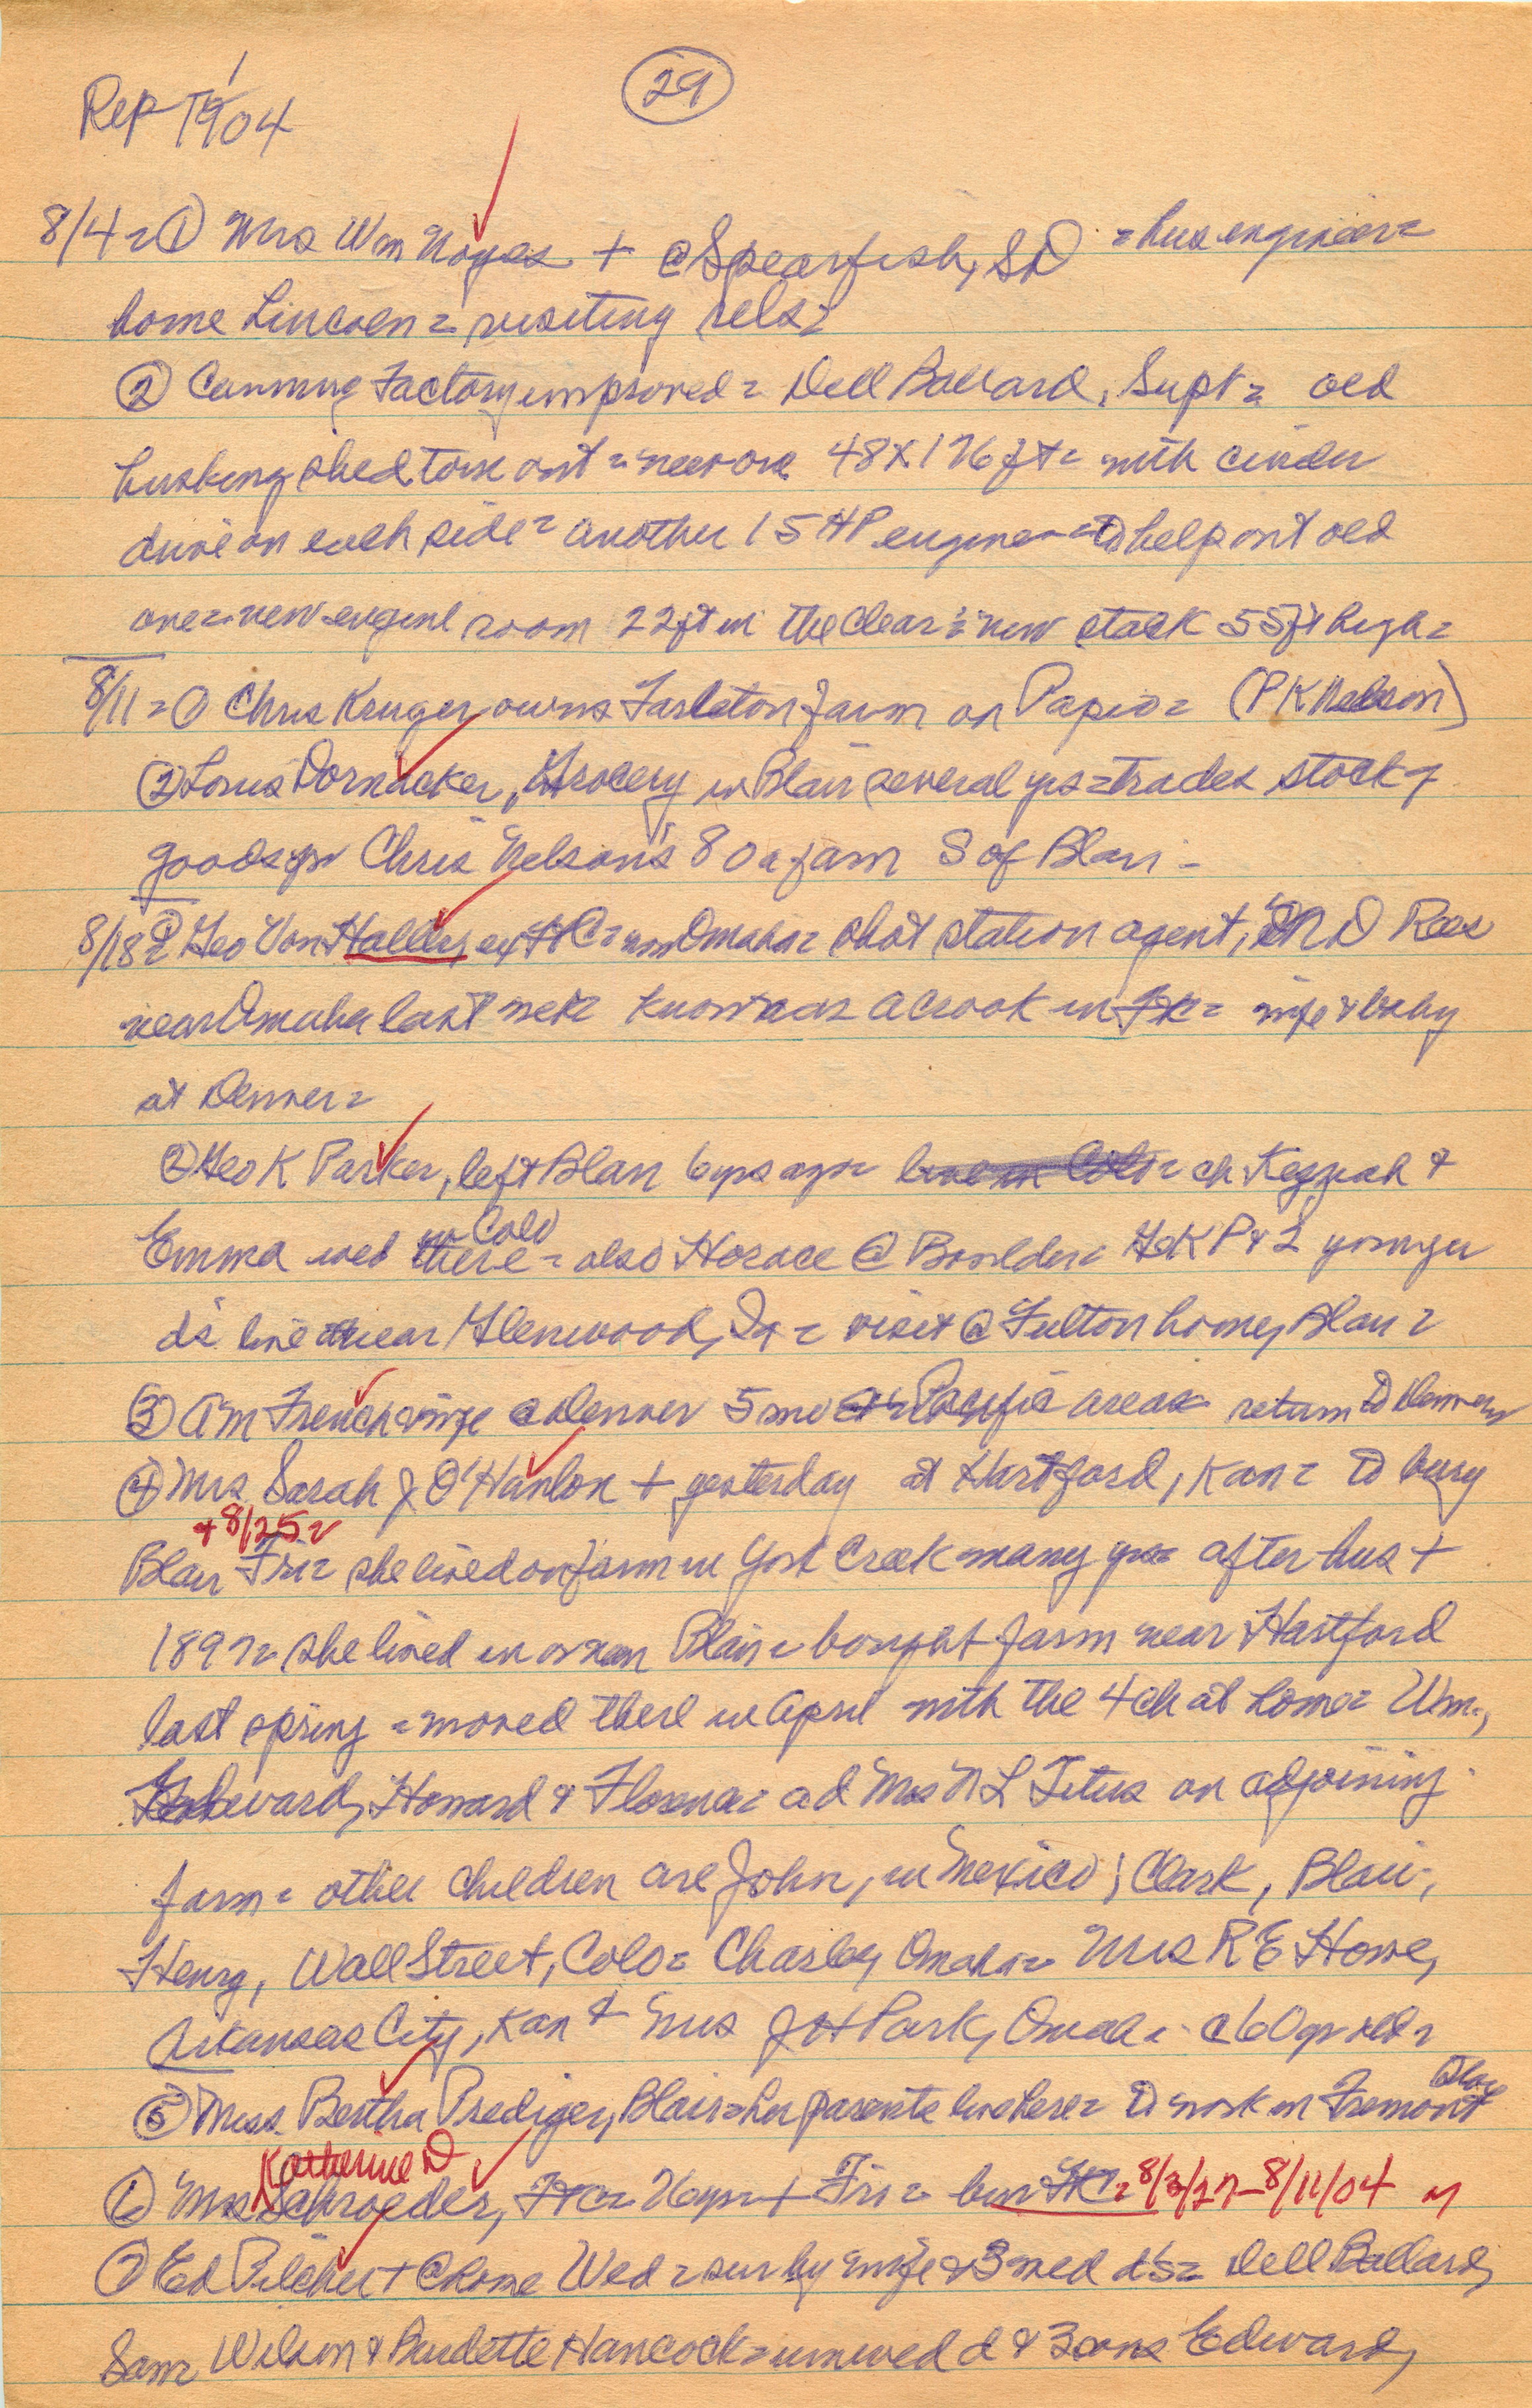 29
Rep 1904
8/4 = ① Mrs Wm Noyes + @ Spearfish, SD = hus engineer =
home Lincoln = visiting rels =
② Canning Factory improved = Dell Ballard, Supt = old
husking shed torn out = new one 48 x 176 ft = with cinder
drive on each side = another 15 HP engine = to help out old
one = new engine room 22 ft in the clear = new stack 55 ft high =
8/11 = ① Chris Kruger owns Tarleton farm on Papio = (P K Nelson)
② Louis Dornacker, Grocery in Blair several yrs = trades stock of
goods for Chris Nelson's 80 a farm S of Blair -
8/18 = ① Geo Von Haller, ex FtC = now Omaha = shot station agent, N D Rees
near Omaha last wk = known as a crook in = wife & baby
at Denver =
② Geo K Parker, left Blair 6 yrs ago = ch Kezziah &
Emma wed there in Colo = also Horace @ Boulder = GeKP & 2 younger
d's live near Glenwood, Ia = visit @ Fulton home, Blair =
③ A M French & wife @ Denver 5 mo Pacific area = return to Denver
④ Mrs Sarah J O'Hanlon + yesterday at Hartford, Kan = to bury
+ 8/25 =
Blair Fri = she lived on farm in York Creek many yrs = after hus +
1897 = she lived in or near Blair = bought farm near Hartford
last spring = moved there in April with the 4 ch at home = Wm.,
Edward, Howard & Florence = a d Mrs N L Titus on adjoining
farm = other children are John, in Mexico; Clark, Blair;
Henry, Wall Street, Colo = Charley, Omaha = Mrs R E Howe,
Arkansas City, Kan & Mrs J H Park, Omaha = @ 60 yr old =
⑤ Miss Bertha Prediger, Blair = her parents live here = to work in Fremont
Katherine D
⑥ Mrs Schroeder, FtC = 76 yrs + Fri = bur FtC = 8/3/27 - 8/11/04
⑦ Ed Pilcher + @ home Wed = sur by wife & 3 wed d's = Dell Ballard,
Sam Wilson & Burdette Hancock = unwed d & 3 sons Edward,